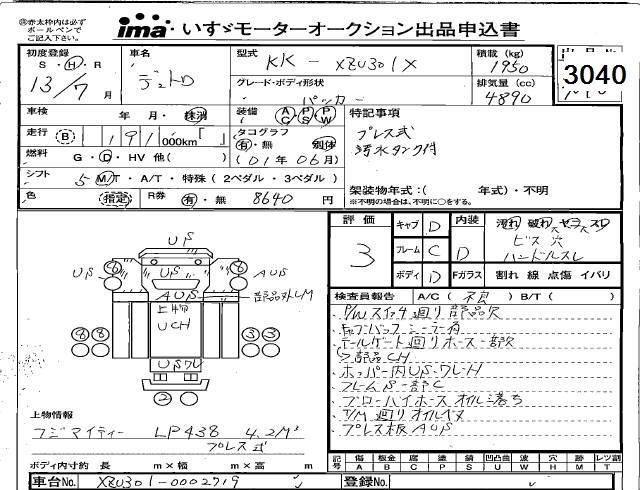 ㊟赤太枠内は必ず
ボールペンで
ご記入下さい。
ima いすゞモーターオークション出品申込書
初度登録 S・H・R 13/7 月
車名 デュトロ
型式 KK-XZU301X
積載(kg) 1950
グレード・ボディ形状 パッカー
排気量(cc) 4890
3040
車検 年 月・抹消
装備 AC PS PW
特記事項
プレス式
汚水タンク付
走行 B 191 000km「 」
タコグラフ 有・無 別体
燃料 G・D・HV 他( ) (01年06月)
シフト 5 M/T・A/T・特殊(2ペダル・3ペダル)
架装物年式:( 年式)・不明
※不明の場合は、不明に○をする。
色 指定 R券 有・無 8640 円
評価 3
キャブ D
フレーム C
ボディ D
内装 D
汚れ 破れ ヤブレ スレ
ビス穴
ハンドルスレ
Fガラス 割れ 線 点傷 イバリ
UPS
UPS 6 UPS 8 AUS
AUS 部品外しM
上部
UCH
8 8 3 3
USワレ
2
検査員報告 A/C(不良)B/T( )
・P/Wスイッチ廻り部品欠
・キャブバック ミーラー有
・テールゲート廻りホース一部欠
部品CH
・ホッパー内US・ワレ・H
・フレームS一部C
・ブローバイホースオイル落ち
・T/M廻りオイルモレ
・プレス板AUS
上物情報
フジマイティー LP438 4.2M³
プレス式
ボディ内寸約 長 m×幅 m×高 m
記号 傷A 板金B 腐C 塗P 錆S 凹凸曲U 波W 穴H 跡M レツ割T
車台No. XZU301-0002719
登録No.